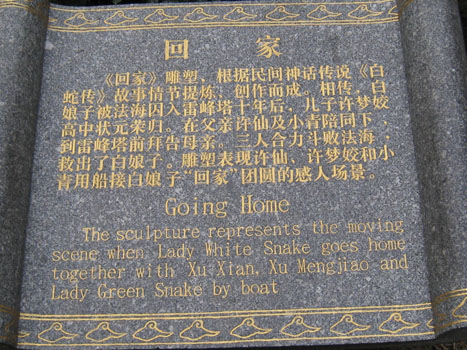 回 家
《回家》雕塑，根据民间神话传说《白
蛇传》故事情节提炼，创作而成。相传，白
娘子被法海囚入雷峰塔十年后，儿子许梦姣
高中状元荣归。在父亲许仙及小青陪同下，
到雷峰塔前拜告母亲。三人合力斗败法海，
救出了白娘子。雕塑表现许仙、许梦姣和小
青用船接白娘子“回家”团圆的感人场景。
Going Home
The sculpture represents the moving
scene when Lady White Snake goes home
together with Xu Xian, Xu Mengjiao and
Lady Green Snake by boat